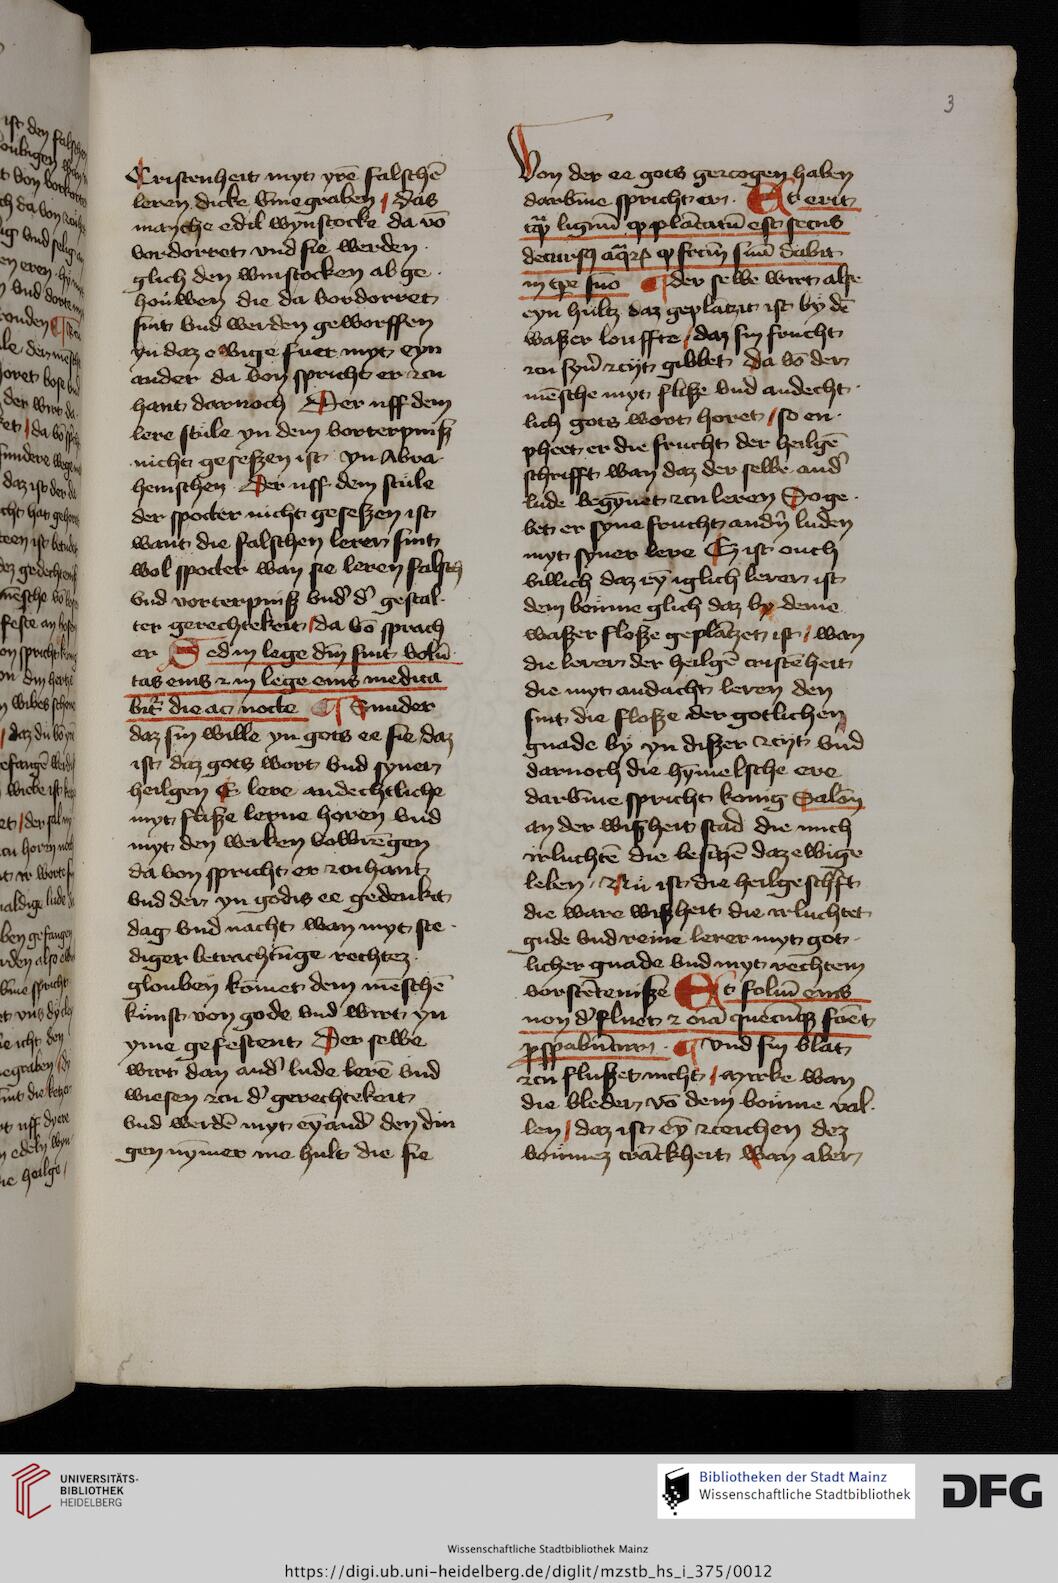 3
Cristenheit myt yrē falschē
leren dicke vmegraben / Das
manche edil wynstocke da vō
vordorret vnd sie werden
glich den winstocken ab ge
houwen die da vordorret
sint vnd werden geworffen
yn daz ewige fuer myt eyn
ander da von spricht er zcu
hant darnoch Der uff dem
lere stule yn dem vorterpniß
nicht geseßen ist yn Abra
hemschen Der uff dem stule
der spotter nicht geseßen ist
want die falschen lerer sint
wol spotter wan sie leren falsch
vnd vorterpniß vnd' d' gestal
ter gerechtekeit / da vō sprach
er Sed in lege dm̄ fuit volū
tas eius ⁊ in lege eius medita
bit' die ac nocte Sunder
daz sin wille yn gots ee sie daz
ist daz gots wort vnd syner
heilgen lere andechtliche
myt fliße lerne horen vnd
myt den werken volbrēgen
da von spricht er zcuhant
vnd der yn godis ee gedenkit
dag vnd nacht wan myt ste
diger betrachtūge rechtez
glouben kōmet dem mēschē
kunst von gode vnd wirt yn
yme gefestent Der selbe
wirt dan and' lude lerē vnd
wiesen zcu d' gerechtekeit
vnd werdē myt eyand' den din
gen nȳmer me hult die sie
Von der ee gots gezcogen haben
darvme spricht er Et erit
tāq̄ lignū qd plātatū est secus
decursꝫ aq̄rꝝ qd fructū suū dabit
in tpe suo der selbe wirt alse
eyn hultz daz geplātzit ist by dē
waßer louffte / daz sin frucht
zcu syn' zcyt gibbet Da vō der
mēsche myt fliße vnd andecht
lich gots wort horet / so en
pheet er die frucht der heilgē
schrifft wan daz der selbe and'
lude begynet zcu leren So ge
bet er syne frucht andn̄ luden
myt syner lere Eß ist ouch
billich daz eȳ iglich lerer ist
dem boume glich daz by deme
waßer floße geplātzet ist / wan
die lerer der heilgē cristēheit
die myt andacht leren den
sint die floße der gotlichen
gnade by yn dißer zcyt vnd
darnoch die hȳmelsche ere
darvme spricht konig Salom̄
an der wißheit stad die mich
irluchtē die besitzē daz ewige
leben / Nu ist die heilge schrift
die ware wißheit die irluchtet
gude vnd reine lerer myt got
licher gnade vnd myt rechtem
vorstēteniße Et foliū eius
non d'fluet ⁊ oīa quecūqꝫ faciet
ꝓsperabūtur vnd sin blat
zcu flußet nicht / Myrcke wan
die bleder vō dem boume val
len / daz ist eȳ zceichen dez
boumez crāckheit Wan aber
UNIVERSITÄTS-
BIBLIOTHEK
HEIDELBERG
Bibliotheken der Stadt Mainz
Wissenschaftliche Stadtbibliothek
DFG
Wissenschaftliche Stadtbibliothek Mainz
https://digi.ub.uni-heidelberg.de/diglit/mzstb_hs_i_375/0012